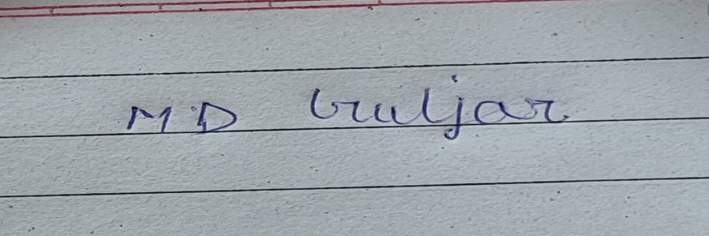 MD Guljar